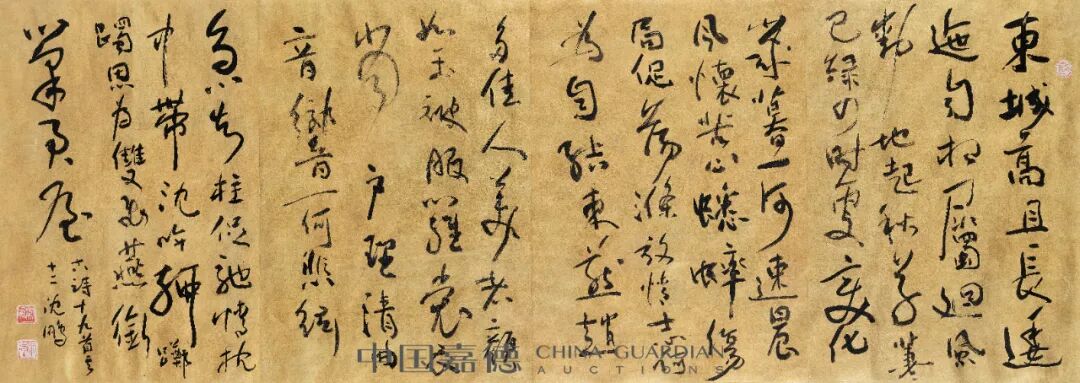 東城高且長逶
迤自相屬迴風
動地起秋草萋
已綠四時更變化
歲暮一何速晨
風懷苦心蟋蟀傷
局促蕩滌放情志何
為自結束燕趙
多佳人美者顏
如玉被服羅裳衣
當戶理清曲
音響一何悲絃
急知柱促馳情整
中帶沈吟聊躑
躅思為雙飛燕銜
泥巢君屋
古詩十九首之
十二沈鵬
中国嘉德 CHINA GUARDIAN
AUCTIONS